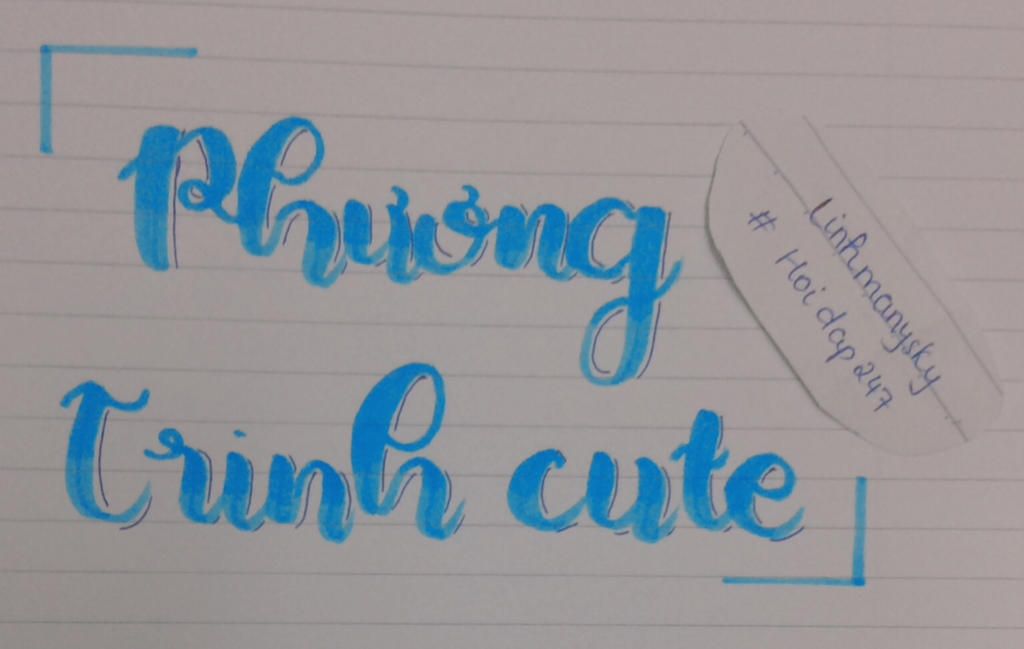 Phương
Trinh cute
Linhmanysky
# Hoidap247